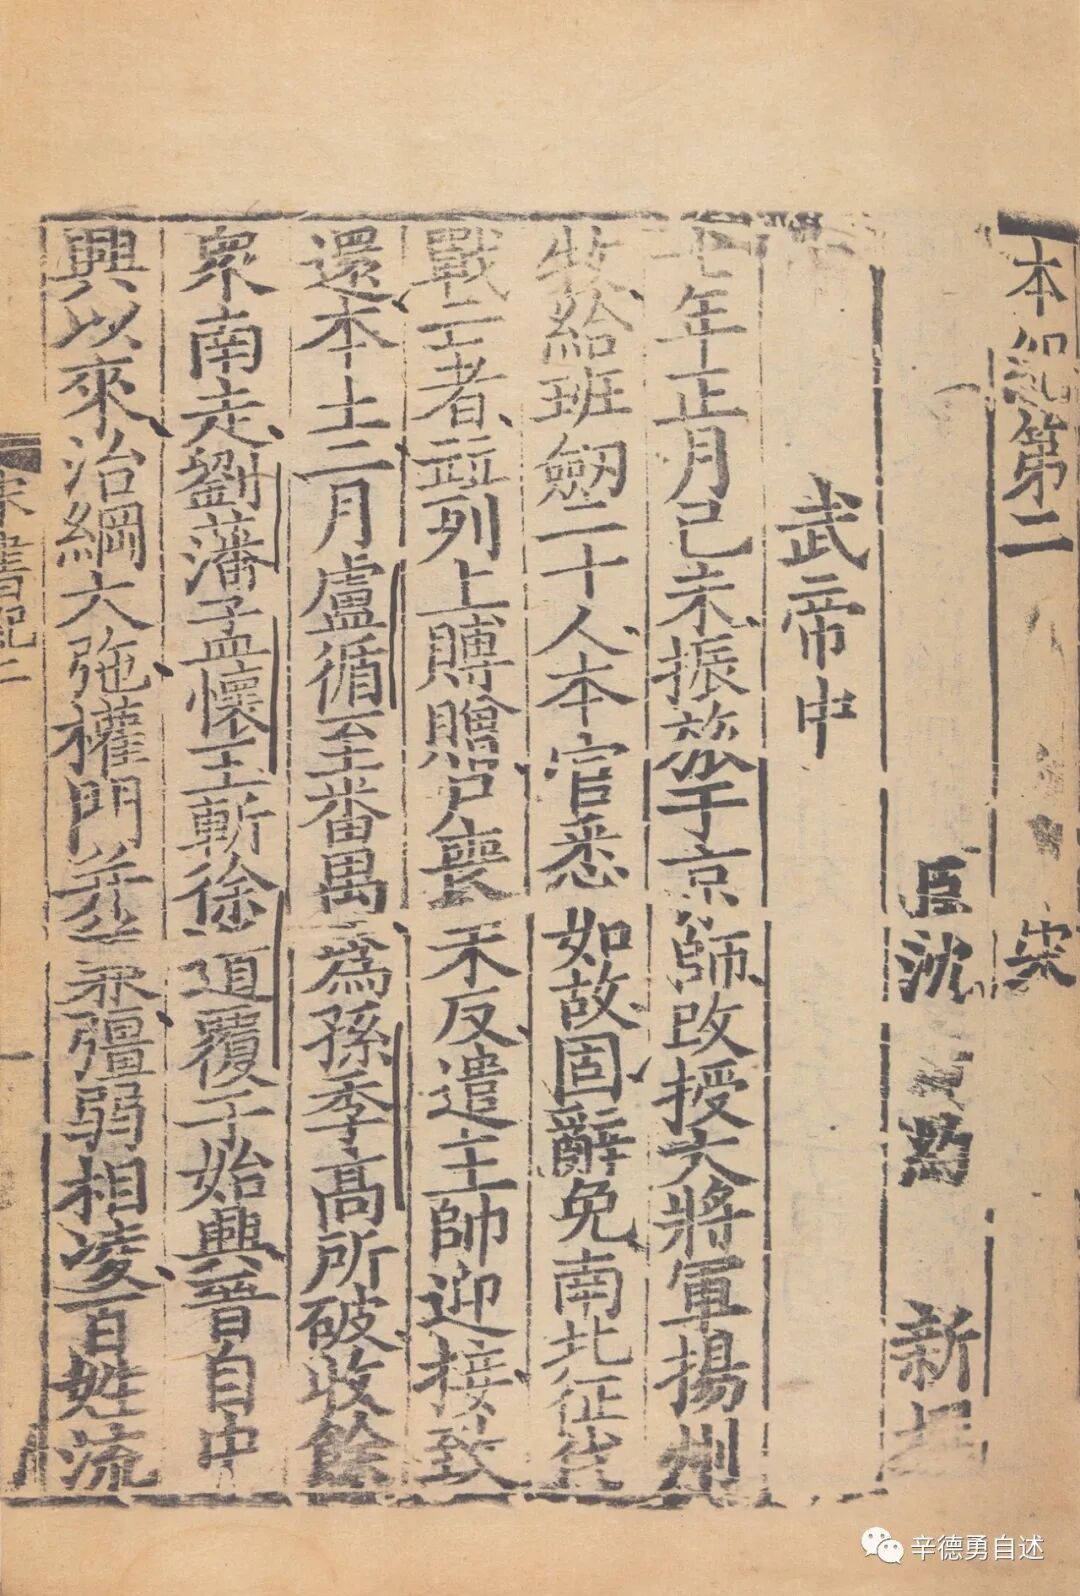 本紀第二 宋
臣沈 約 新撰
武帝中
七年正月己未振旅于京師改授大將軍揚州
牧給班劒二十人本官悉如故固辭免南北征伐
戰亡者並列上賻贈尸喪未反遣主帥迎接致
還本土二月盧循至番禺為孫季高所破收餘
衆南走劉藩孟懷玉斬徐道覆于始興晉自中
興以來治綱大弛權門并兼彊弱相凌百姓流
宋書紀二
一
辛德勇自述